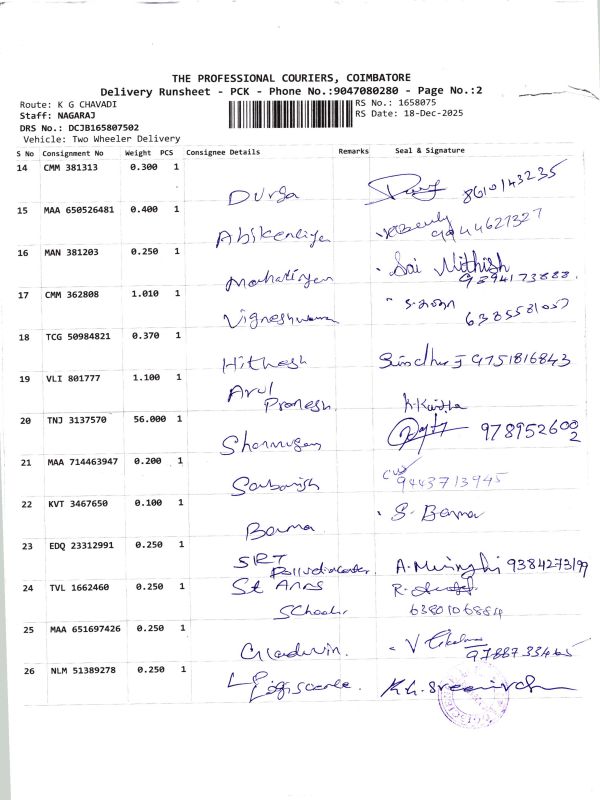 THE PROFESSIONAL COURIERS, COIMBATORE
Delivery Runsheet - PCK - Phone No.:9047080280 - Page No.:2
Route: K G CHAVADI RS No.: 1658075
Staff: NAGARAJ RS Date: 18-Dec-2025
DRS No.: DCJB165807502
Vehicle: Two Wheeler Delivery
S No Consignment No Weight PCS Consignee Details Remarks Seal & Signature
14 CMM 381313 0.300 1
Durga 8610143235
15 MAA 650526481 0.400 1
9944627327
16 MAN 381203 0.250 1
Sai Mithish
9894173888.
17 CMM 362808 1.010 1
Vigneshwaran
18 TCG 50984821 0.370 1
Hithesh Sindhu J 9751816843
19 VLI 801777 1.100 1
Arul
Pranesh.
20 TNJ 3137570 56.000 1
Shanmugam 9789526002
21 MAA 714463947 0.200 1
9443713945
22 KVT 3467650 0.100 1
Barma S. Barma
23 EDQ 23312991 0.250 1
SRT
9384273199
24 TVL 1662460 0.250 1
St Anns R.
School 6380106884
25 MAA 651697426 0.250 1
V
9788733465
26 NLM 51389278 0.250 1